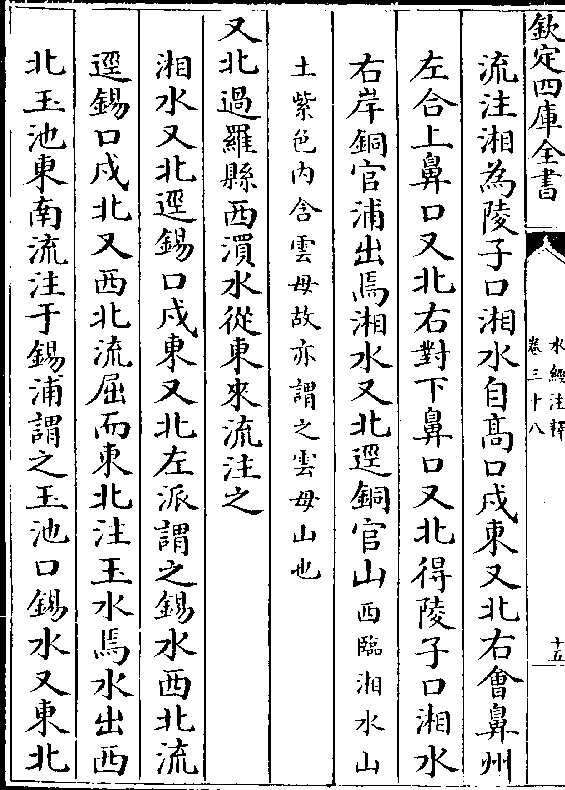 欽定四庫全書
水經注釋
卷三十八
十五
流注湘為陵子口湘水自高口戍東又北右會鼻州
左合上鼻口又北右對下鼻口又北得陵子口湘水
右岸銅官浦出焉湘水又北逕銅官山西臨湘水山
土紫色内含雲母故亦謂之雲母山也
又北過羅縣西㵋水從東來流注之
湘水又北逕錫口戍東又北左派謂之錫水西北流
逕錫口戍北又西北流屈而東北注玉水焉水出西
北玉池東南流注于錫浦謂之玉池口錫水又東北